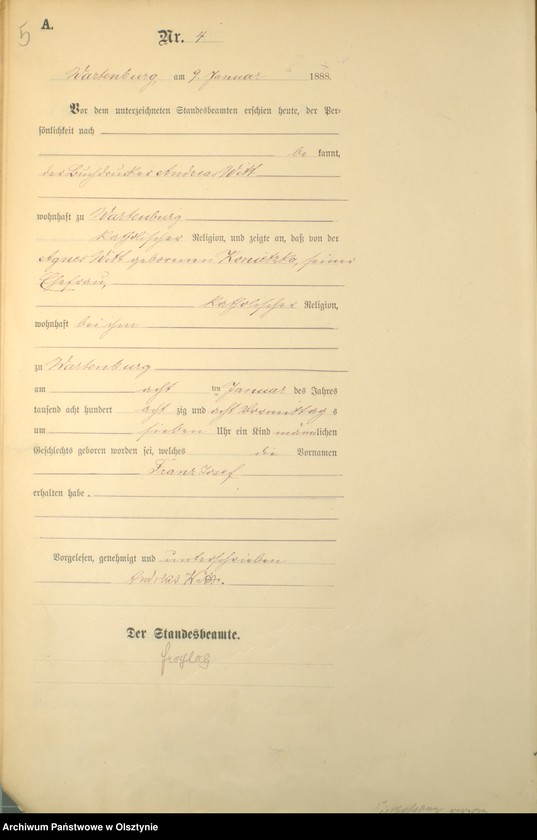 5
A.
Nr. 4
Wartenburg, am 9. Januar 1888.
Vor dem unterzeichneten Standesbeamten erschien heute, der Per-
sönlichkeit nach
be kannt,
der Buchdrucker Andreas Witt
wohnhaft zu Wartenburg
katholischer Religion, und zeigte an, daß von der
Agnes Witt geborenen Konitzka, seiner
Ehefrau,
katholischer Religion,
wohnhaft bei ihm
zu Wartenburg
am acht ten Januar des Jahres
tausend acht hundert acht zig und acht Vormittag s
um sieben Uhr ein Kind männlichen
Geschlechts geboren worden sei, welches die Vornamen
Franz Josef
erhalten habe.
Vorgelesen, genehmigt und unterschrieben
Andreas Witt.
Der Standesbeamte.
Archiwum Państwowe w Olsztynie